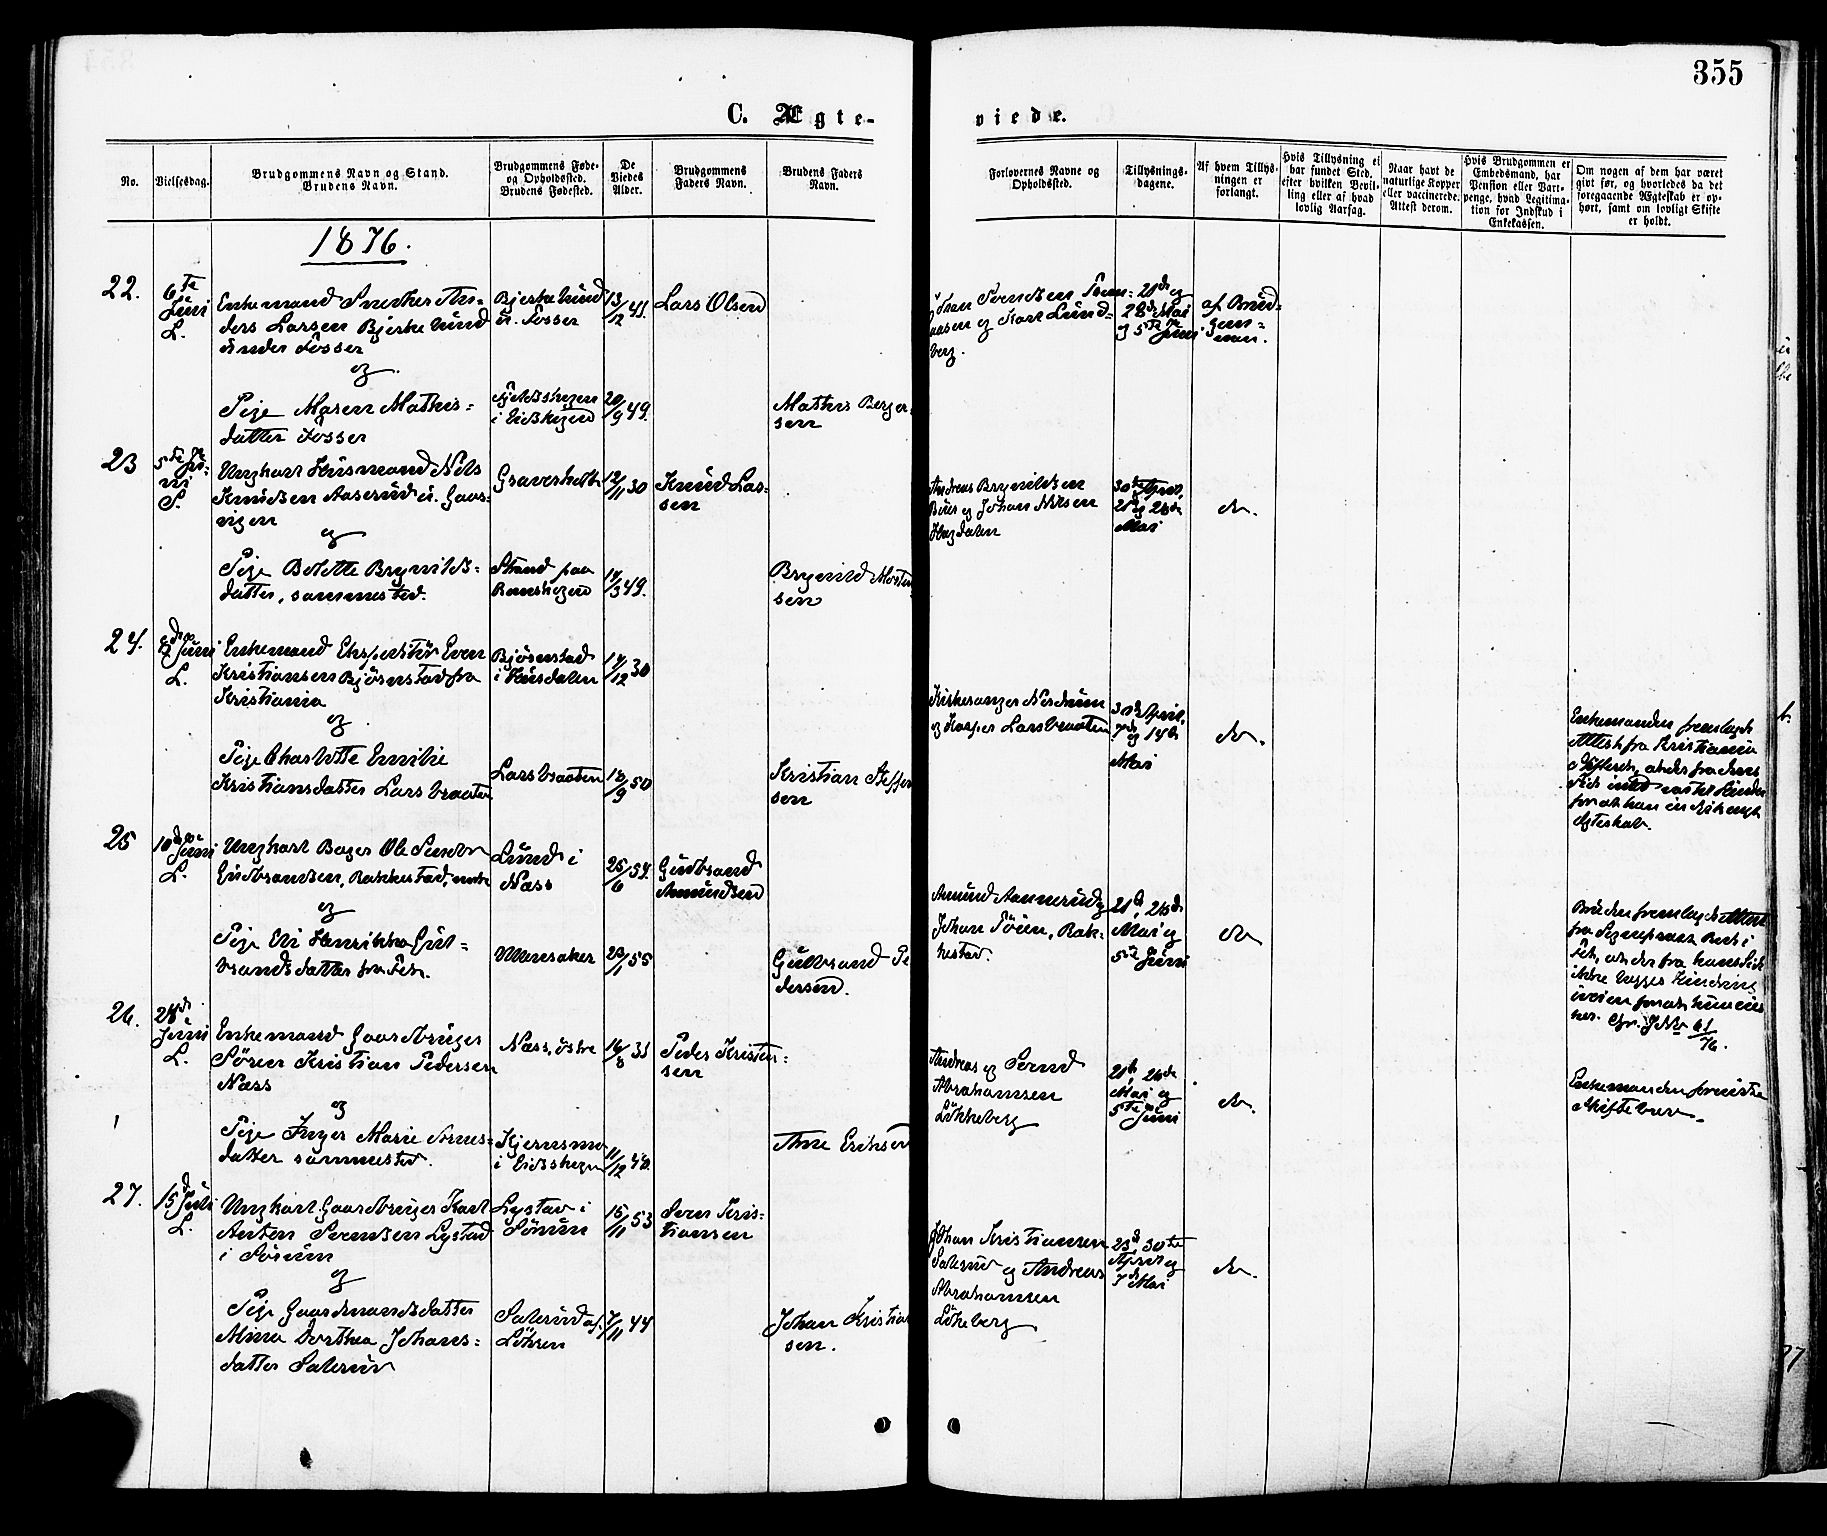 355
C. Ægte-
viede.
No.
Vielsesdag.
Brudgommens Navn og Stand.
Brudens Navn.
Brudgommens Føde-
og Opholdssted.
Brudens Fødested.
De
Viedes
Alder.
Brudgommens
Faders Navn.
Brudens Faders
Navn.
Forlovernes Navne og
Opholdssted.
Tillysnings-
dagene.
Af hvem Tillys-
ningen er
forlangt.
Hvis Tillysning ei
har fundet Sted,
efter hvilken Bevil-
ling eller af hvad
lovlig Aarsag.
Naar havt de
naturlige Kopper
eller vaccinerede.
Attest derom.
Hvis Brudgommen er
Embedsmand, har
Pension eller Vart-
penge, hvad Legitima-
tion for Indskud i
Enkekassen.
Om nogen af dem har været
givt før, og hvorledes da det
foregaaende Ægteskab er op-
hørt, samt om lovligt Skifte
er holdt.
1876.
22.
6te
Juni
L.
Enkemand Snedker An-
ders Larsen Bjerkelund
under Fosser
og
Pige Maren Mathis-
datter Fosser
Bjerkelund
u. Fosser
i Eidskogen
13/12 41
20/9 49.
Lars Olsen
Mathis Berger-
sen
Johan Svendsen
og Karl Lund-
berg.
21de og
28de Mai
og 5te Juni
af Brud-
gom-
men.
23
5te Ju-
ni
S.
Ungkarl Husmand Nils
Knudsen Aaserud u. Gaas-
vigen
og
Pige Bolette Brynilds-
datter, sammested.
Strand paa
Rømskogen
12/11 30
17/3 49.
Knud Las-
sen
Brynild Morten-
sen
Andreas Brynildsen
Buer og Johan Nilsen
Hagdalen
30te April,
21de og 28de
Mai
do.
24.
Juni
L.
Enkemand Ekspeditør Even
Kristiansen Bjørnstad fra
Kristiania
og
Pige Charlotte Emilie
Kristiansdatter Larsbraaten
Bjørnstad
i Husdalen
Larsbraaten
17/12 30
18/9 50
Kristian Steffen-
sen
Kirkesanger Nordrum
og Kasper Larsbraaten
30te April,
7de og 14de
Mai
do.
Enkemanden fremlagde
Attest fra Kristiania
Skifteret, at der fra dennes
Side intet var til Hinder
for at han indgik nyt
Ægteskab.
25
10de Juni
L.
Ungkarl Bager Ole
Gudbrandsen, Rakkestad,
og
Pige Eli Henrikke Gul-
brandsdatter fra Fet.
Lund i
Næss
Ullensaker
25/6 54.
20/1 55
Gudbrand
Amundsen
Gulbrand Pe-
dersen.
Amund Aannerud og
Johan Søien, Rak-
kestad.
21de, 28de
Mai og
5te Juni
do
Bruden fremlagde Attest
fra Sogneprest Beck i
Fet, at der fra hans Side
ikke lagges Hindring
i veien for at hun vies
her. Cfr. J.No 61/76.
26.
24de
Juni
L.
Enkemand Gaardbruger
Søren Kristian Pedersen
Næss
og
Pige Inger Marie Arnes-
datter sammested.
Næss, østre
Kjernsmo
i Eidskogen
16/8 31
11/12 40.
Peder Kristen-
sen
Arne Eriksen
Andreas og Svend
Abrahamsen
Løkkeberg
21de, 28de
Mai og
5te Juni
do.
Enkemanden foreviste
Skiftebrev.
27.
15de Juli
L.
Ungkarl Gaardbruger Karl
Anton Svendsen Lystad
i Sørum
og
Pige Gaardmandsdatter
Mina Dorthea Johans-
datter Saterud
Lystad i
Sørum
Saterud af
15/11 53
7/11 44
Sven Kris-
tiansen
Johan Kristian-
sen.
Johan Kristiansen
Saterud og Andreas
Abrahamsen
Løkeberg
23de, 30te
April og
7de Mai
do.